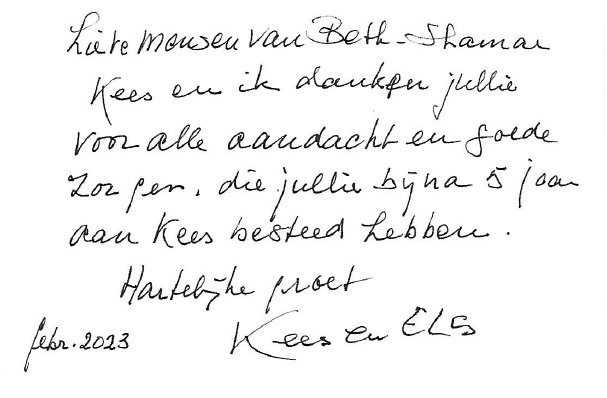 Lieve mensen van Beth-Shamar
Kees en ik danken jullie
voor alle aandacht en goede
zorgen, die jullie bijna 5 jaar
aan Kees besteed hebben.
Hartelijke groet
Kees en ELS
febr. 2023